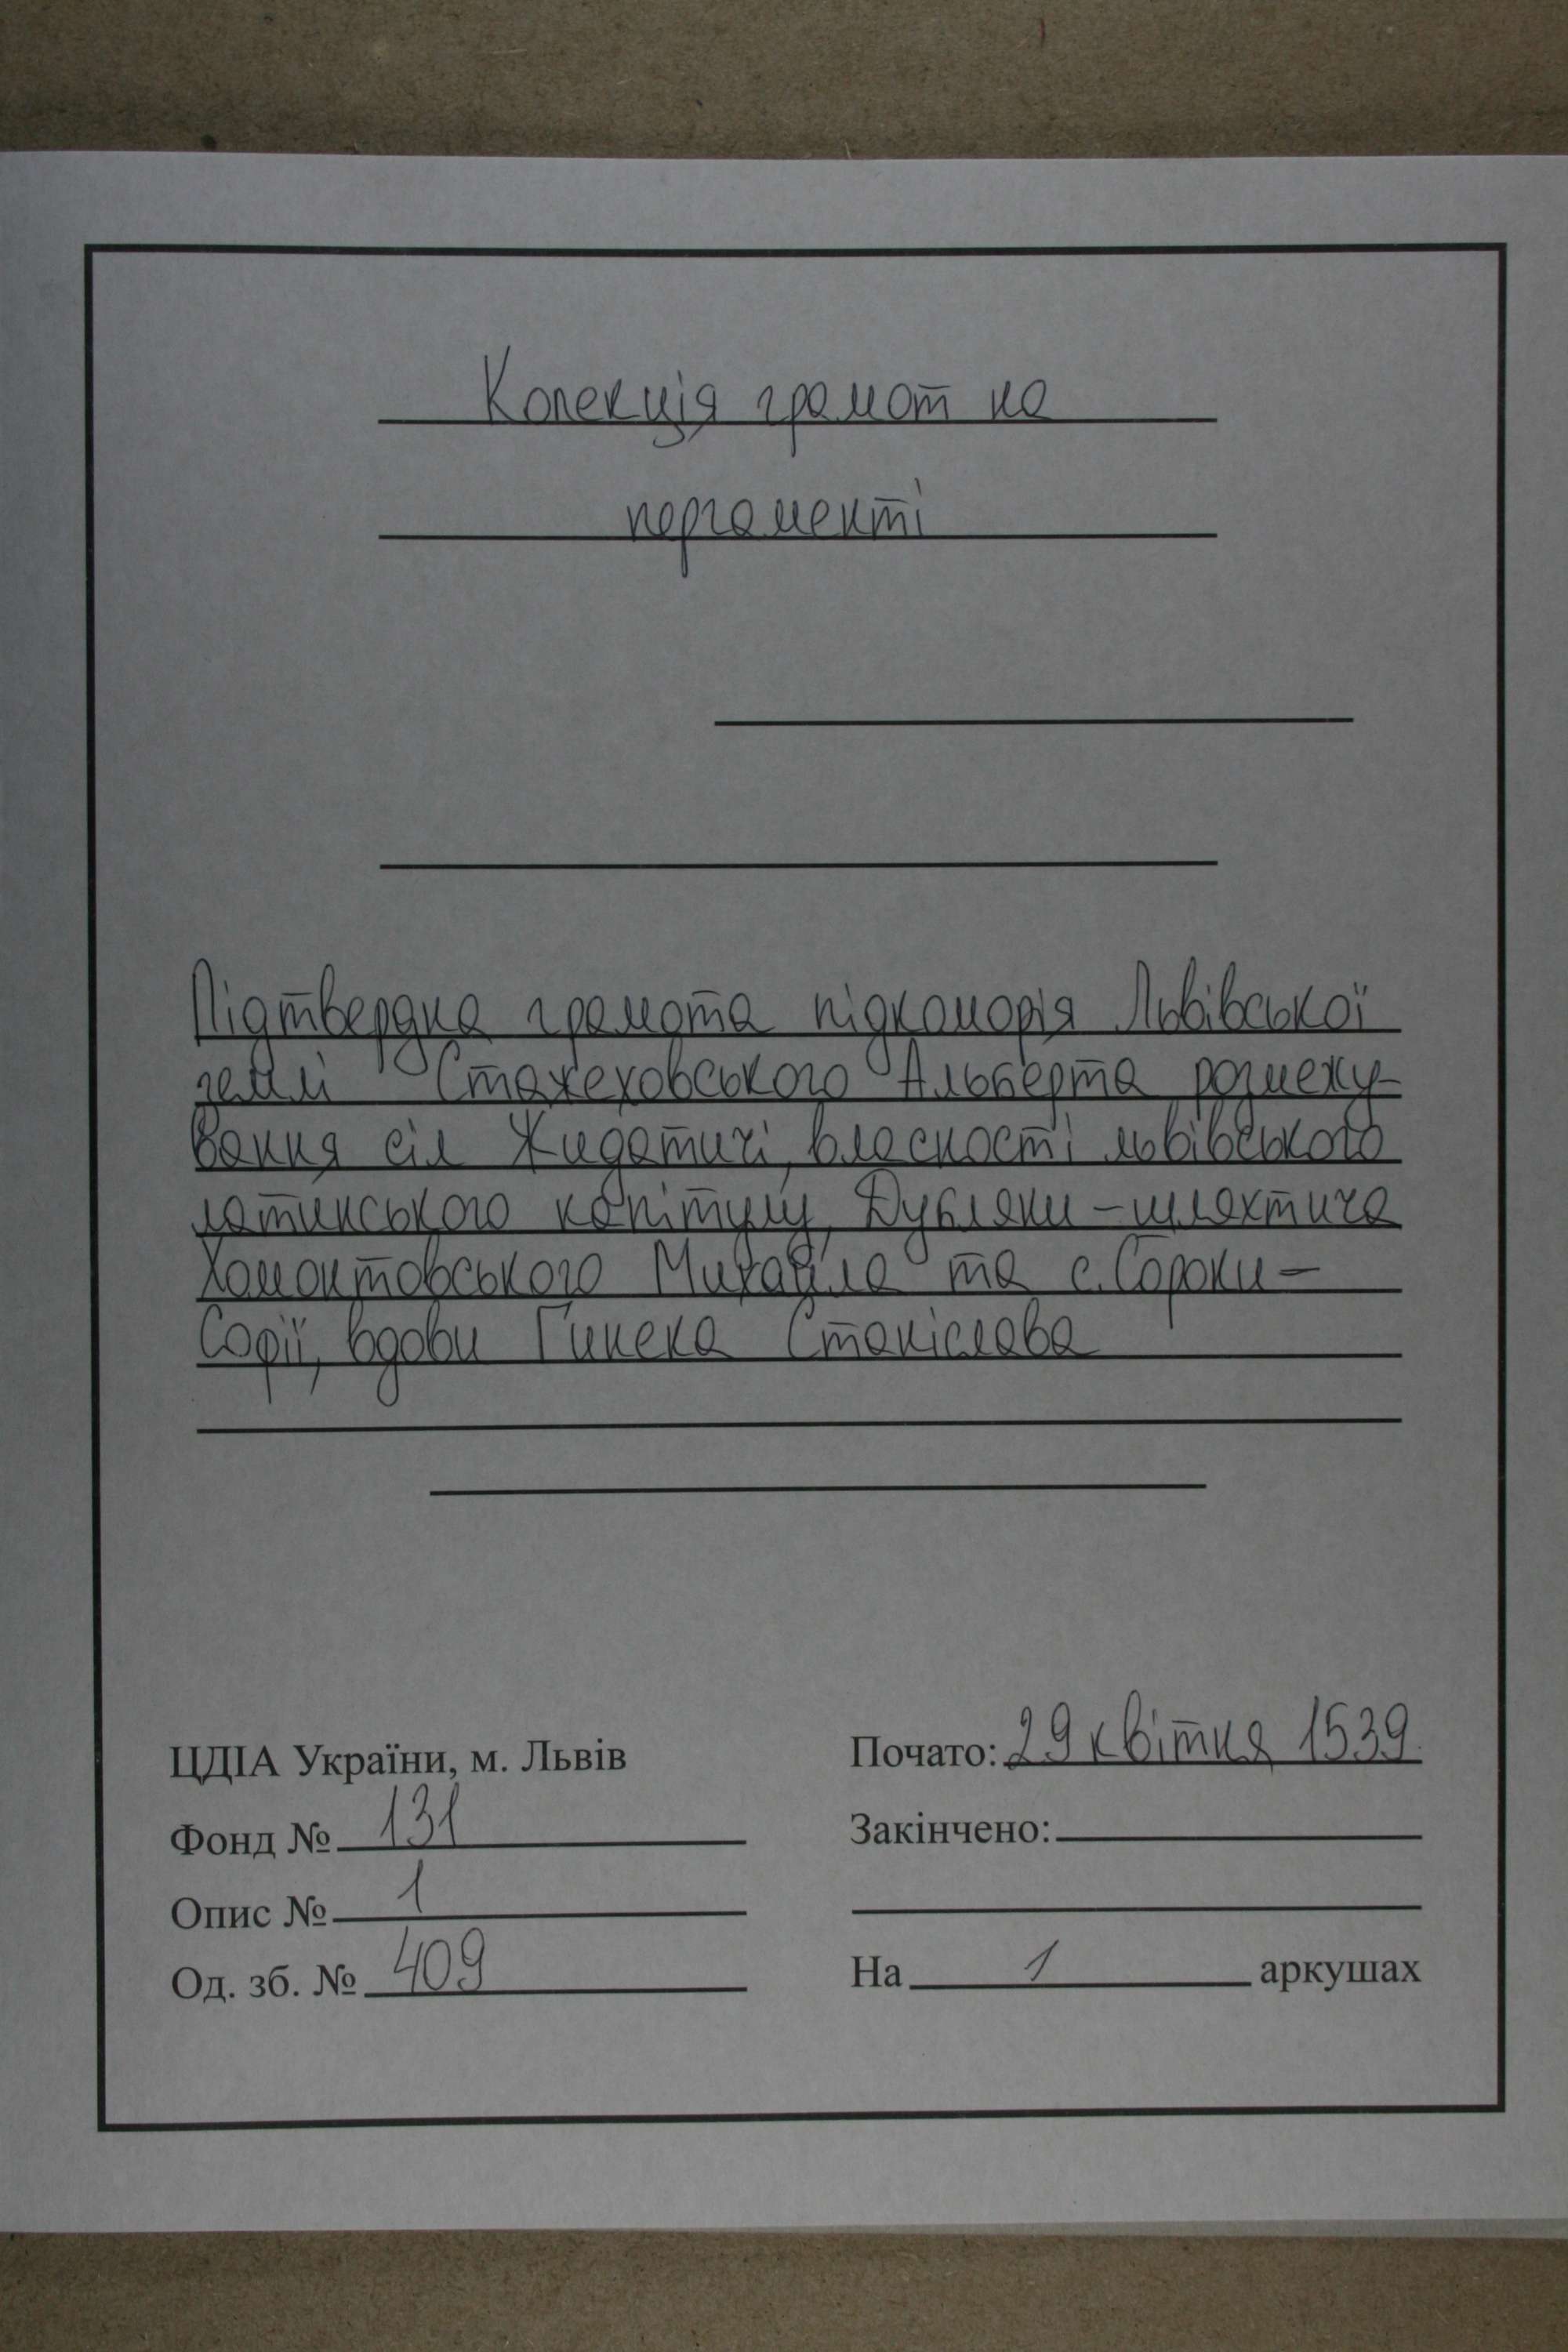 Колекція грамот на
пергаменті
Підтвердна грамота підкоморія Львівської
землі Стажеховського Альберта розмежу-
вання сіл Жидатичі, власності львівського
латинського капітулу, Дубляни – шляхтича
Хамонтовського Михайла та с. Сороки –
Софії, вдови Гинека Станіслава
ЦДІА України, м. Львів
Фонд № 131
Опис № 1
Од. зб. № 409
Почато: 29 квітня 1539
Закінчено:
На 1 аркушах